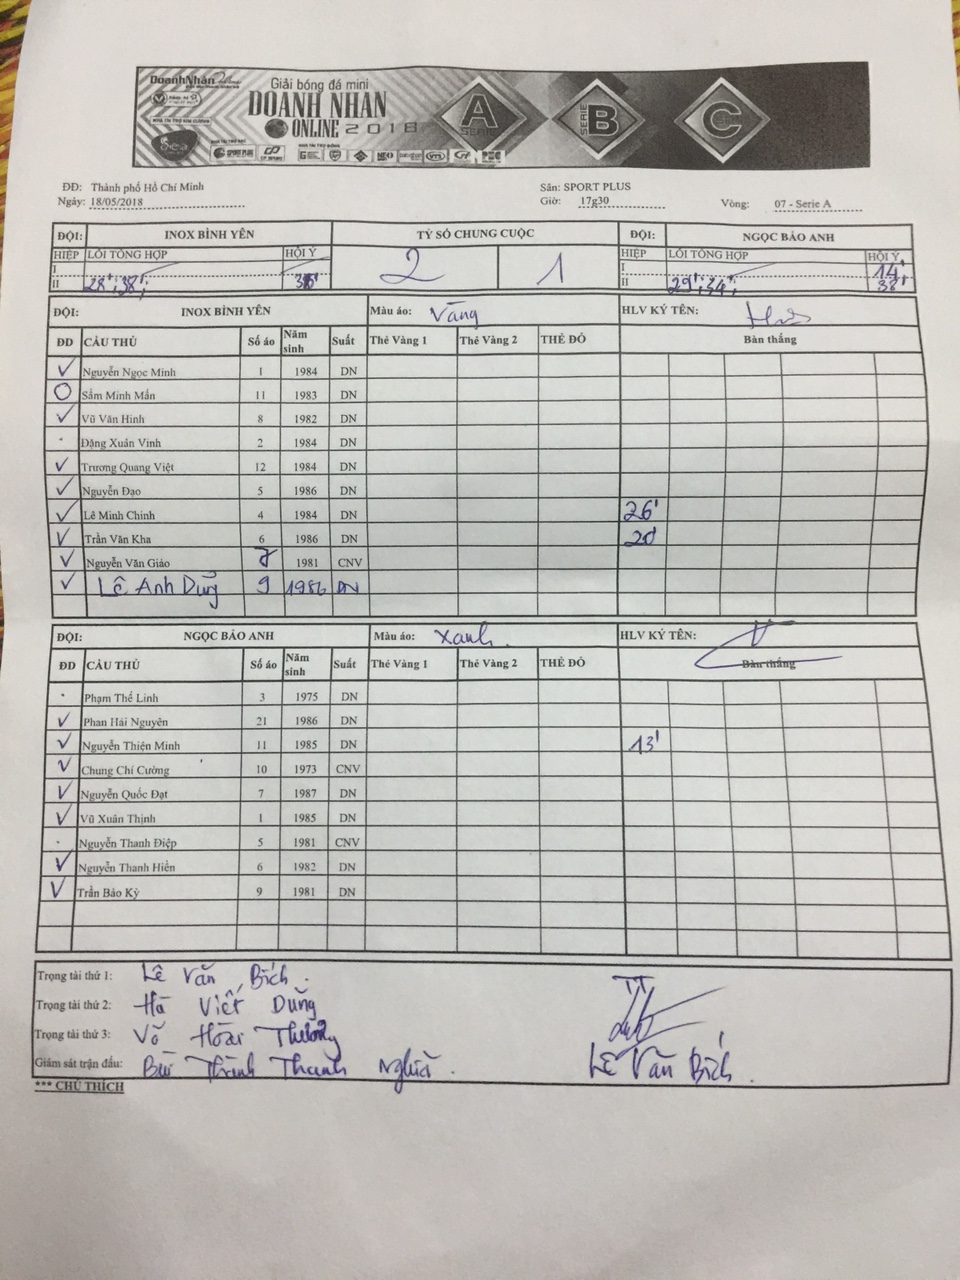 DoanhNhân
Giải bóng đá mini
DOANH NHÂN
ONLINE 2018
A
SERIE
B
SERIE
C
NHÀ TÀI TRỢ KIM CƯƠNG
Sea
SPORT PLUS
ĐĐ: Thành phố Hồ Chí Minh Sân: SPORT PLUS
Ngày: 18/05/2018 Giờ: 17g30 Vòng: 07 - Serie A
ĐỘI: INOX BÌNH YÊN TỶ SỐ CHUNG CUỘC ĐỘI: NGỌC BẢO ANH
HIỆP LỖI TỔNG HỢP HỘI Ý 2 1 HIỆP LỖI TỔNG HỢP HỘI Ý
I I 14'
II 28'; 38'; II 29'; 34';
ĐỘI: INOX BÌNH YÊN Màu áo: Vàng HLV KÝ TÊN:
ĐD CẦU THỦ Số áo Năm sinh Suất Thẻ Vàng 1 Thẻ Vàng 2 THẺ ĐỎ Bàn thắng
Nguyễn Ngọc Minh 1 1984 DN
Sầm Minh Mẫn 11 1983 DN
Vũ Văn Hinh 8 1982 DN
Đặng Xuân Vinh 2 1984 DN
Trương Quang Việt 12 1984 DN
Nguyễn Đạo 5 1986 DN
Lê Minh Chinh 4 1984 DN 26'
Trần Văn Kha 6 1986 DN 20'
Nguyễn Văn Giáo 7 1981 CNV
Lê Anh Dũng 9 1986 DN
ĐỘI: NGỌC BẢO ANH Màu áo: Xanh HLV KÝ TÊN:
ĐD CẦU THỦ Số áo Năm sinh Suất Thẻ Vàng 1 Thẻ Vàng 2 THẺ ĐỎ Bàn thắng
Phạm Thế Linh 3 1975 DN
Phan Hải Nguyên 21 1986 DN
Nguyễn Thiện Minh 11 1985 DN 13'
Chung Chí Cường 10 1973 CNV
Nguyễn Quốc Đạt 7 1987 DN
Vũ Xuân Thịnh 1 1985 DN
Nguyễn Thanh Điệp 5 1981 CNV
Nguyễn Thanh Hiền 6 1982 DN
Trần Bảo Kỳ 9 1981 DN
Trọng tài thứ 1: Lê Văn Bích.
Trọng tài thứ 2: Hà Viết Dũng
Trọng tài thứ 3: Võ Hoài Thương
Giám sát trận đấu: Bùi Thịnh Thanh Nghĩa.
TT
Lê Văn Bích.
*** CHÚ THÍCH